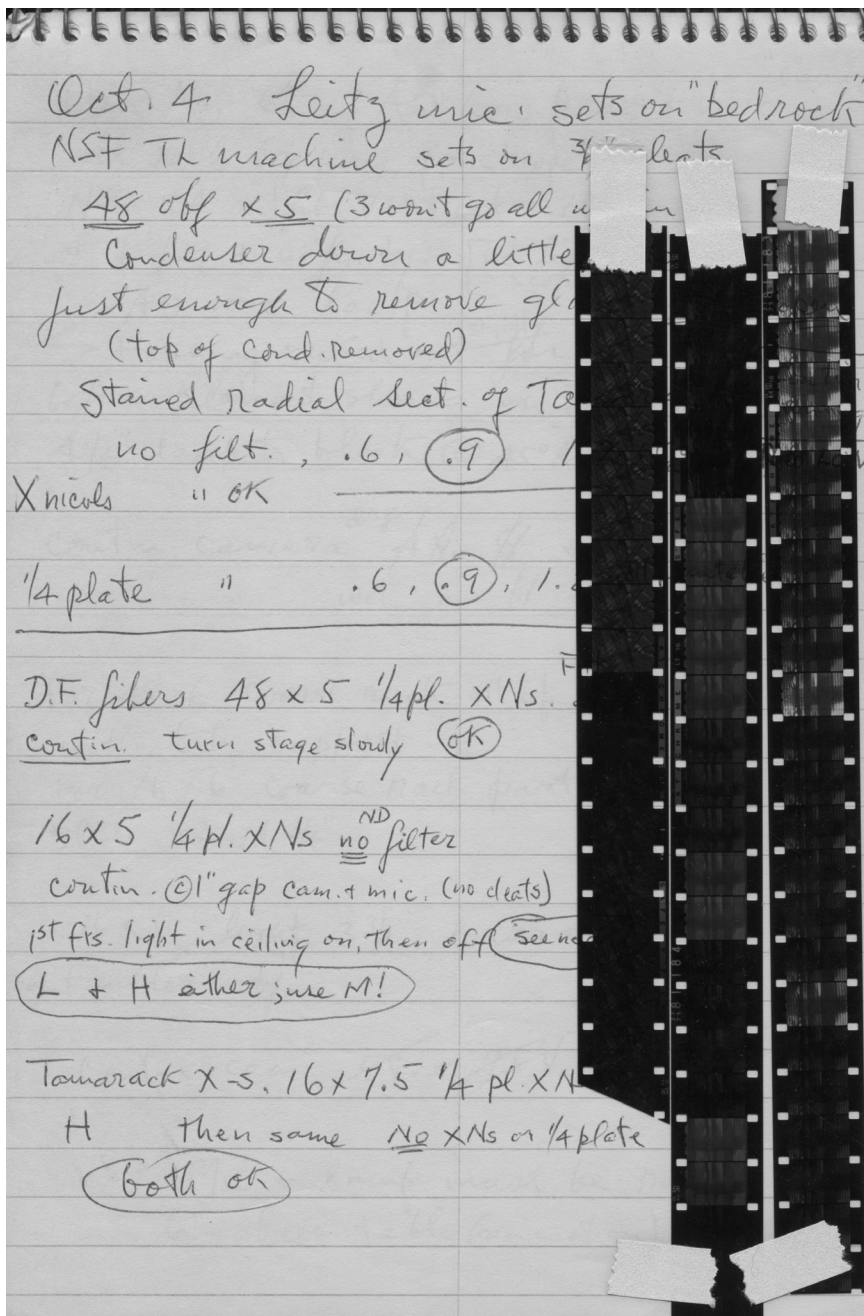 Oct. 4 Leitz mic. sets on "bedrock"
NSF TL machine sets on
48 obj x 5 (3 wont go all
Condenser down a little
just enough to remove
(top of cond. removed)
Stained radial sect. of
no filt., .6, .9
X nicols " OK
1/4 plate " .6, .9, 1.
D.F. fibers 48 x 5 1/4 pl. XNs.
contin. turn stage slowly OK
16 x 5 1/4 pl. XNs no ND filter
contin. @ 1" gap cam. + mic. (no cleats)
1st frs. light in ceiling on, then off see
L + H either; use M!
Tamarack X-s. 16 x 7.5 1/4 pl. X N
H then same No XNs or 1/4 plate
both ok